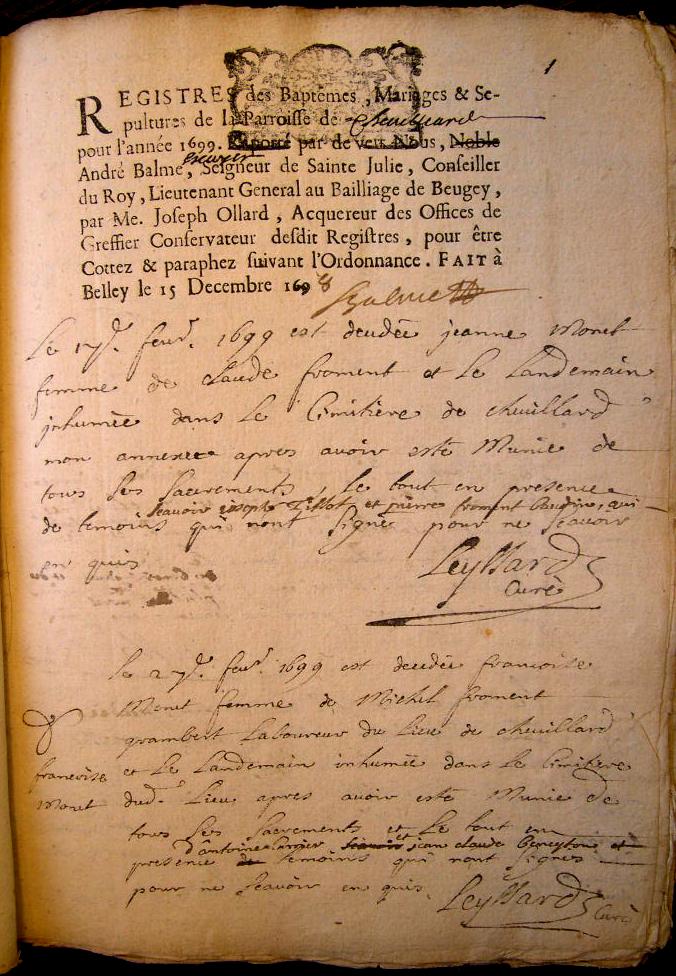 1
REGISTRES des Baptêmes, Mariages & Se-
pultures de la Parroisse de Cheuillard
pour l'année 1699. Raporté par devers Nous, Noble
André Balme, escuyer Seigneur de Sainte Julie, Conseiller
du Roy, Lieutenant General au Bailliage de Beugey,
par Me. Joseph Ollard, Acquereur des Offices de
Greffier Conservateur desdit Registres, pour être
Cottez & paraphez suivant l'Ordonnance. FAIT à
Belley le 15 Decembre 1698
Balme
Le 17e. feur. 1699 est decedée jeanne Monet
femme de claude froment et le Landemain
inhumée dans le Cimitière de cheuillard
mon annexe apres avoir esté Munie de
tous ses sacrements, le tout en presence
scavoir joseph Tillot et pierre froment Cusin, qui
de temoins qui n'ont signé pour ne scavoir
en quis
Leyssard
Curé
le 27e. feur. 1699 est decedée francoise
Monet femme de Michel froment
grambert Laboureur du Lieu de cheuillard
et le Landemain inhumée dans le Cimitiere
francoise
Monet
dud. Lieu apres avoir esté Munie de
tous ses sacrements et le tout en
d'antoine scavoir et jean claude et
presence de temoins qui n'ont signés
pour ne scavoir en quis.
Leyssard
Curé